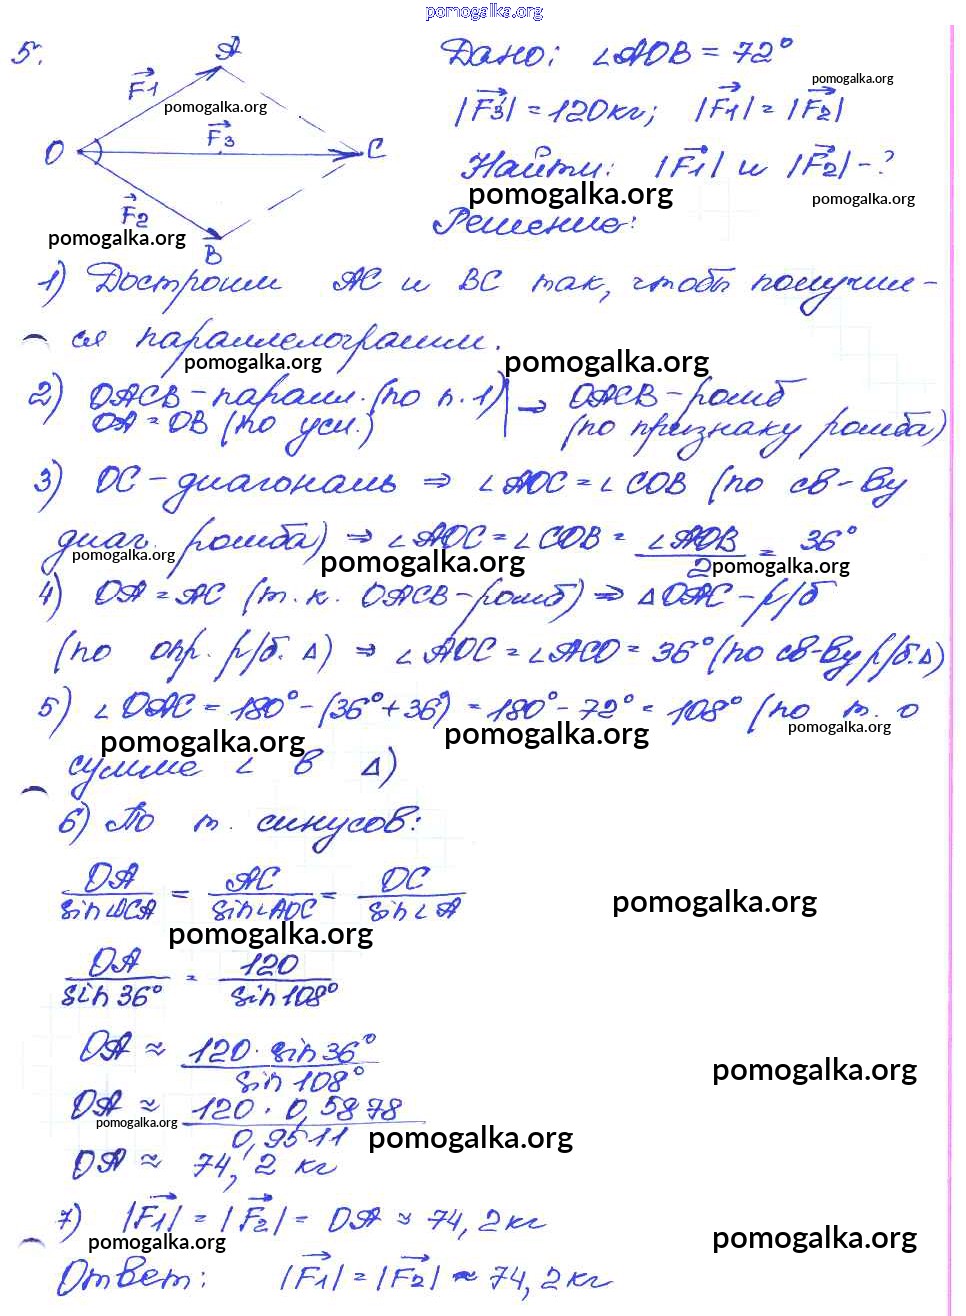 pomogalka.org
5.
A
Дано: ∠AOB = 72°
F1
pomogalka.org
pomogalka.org
|F3| = 120кг; |F1| = |F2|
O F3 C
Найти: |F1| и |F2| - ?
pomogalka.org
pomogalka.org
F2
Решение:
pomogalka.org
B
1) Достроим AC и BC так, чтобы получил-
ся параллелограмм.
pomogalka.org
pomogalka.org
2) OACB - паралл. (по п. 1) | → OACB - ромб
OA = OB (по усл.) | (по признаку ромба)
3) OC - диагональ ⇒ ∠AOC = ∠COB (по св-ву
диаг. ромба) ⇒ ∠AOC = ∠COB = ∠AOB / 2 = 36°
pomogalka.org
pomogalka.org
pomogalka.org
4) OA = AC (т.к. OACB - ромб) ⇒ △OAC - р/б
(по опр. р/б. △) ⇒ ∠AOC = ∠ACO = 36° (по св-ву р/б.△)
5) ∠OAC = 180° - (36° + 36°) = 180° - 72° = 108° (по т. о
pomogalka.org
pomogalka.org
pomogalka.org
сумме ∠ в △)
6) По т. синусов:
OA / sin∠OCA = AC / sin∠AOC = OC / sin∠A
pomogalka.org
pomogalka.org
OA / sin 36° = 120 / sin 108°
OA ≈ 120 · sin 36° / sin 108°
pomogalka.org
OA ≈ 120 · 0,5878 / 0,9511
pomogalka.org
pomogalka.org
OA ≈ 74,2 кг
7) |F1| = |F2| = OA ≈ 74,2кг
pomogalka.org
pomogalka.org
Ответ: |F1| = |F2| ≈ 74,2кг